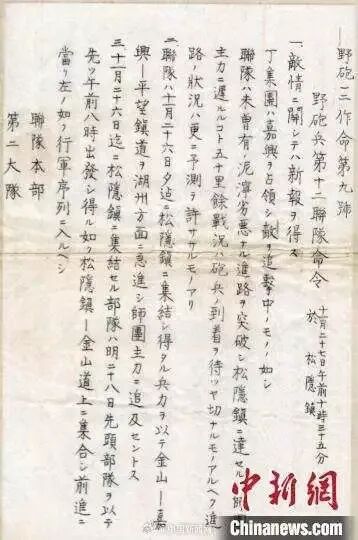 野砲一二作命第九號
野砲兵第十二聯隊命令
十一月二十七日午前十時三十五分
於松隱鎮
一、敵情ニ関シテハ新報ヲ得ス
丁集團ハ嘉興ヲ占領シ敵ヲ追撃中ノモノノ如シ
聯隊ハ未曽有ノ泥濘劣悪ナル進路ヲ突破シ松隱鎮ニ達セルモ師團
主力ニ遅ルルコト五十里餘戰況ハ砲兵ノ到着ヲ待ツヤ切ナルモノアルヘク進
路ノ狀況ハ更ニ予測ヲ許ササルモノアリ
二、聯隊ハ十一月二十六日夕迄ニ松隱鎮ニ集結シ得タル兵力ヲ以テ金山―嘉
興―平望鎮道ヲ湖州方面ニ急進シ師團主力ニ追及セントス
三、十一月二十六日迄ニ松隱鎮ニ集結セル部隊ハ明二十八日先頭部隊ヲ以テ
先ツ午前八時出發シ得ル如ク松隱鎮―金山道上ニ集合シ前進ニ
當リ左ノ如ク行軍序列ニ入ルヘシ
聯隊本部
第二大隊
中新網
Chinanews.com